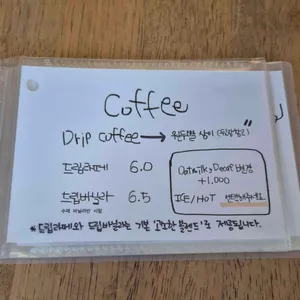 Coffee
Drip coffee → 원두별 상이 (뒷장참고)
드립라떼 6.0
드립바닐라 6.5
수제 바닐라빈 시럽
Oatmilk, Decaf 변경
+1.000
ICE/HOT 선택해주세요
*드립라떼와 드립바닐라는 기본 '고소한 블렌드'로 제공됩니다.